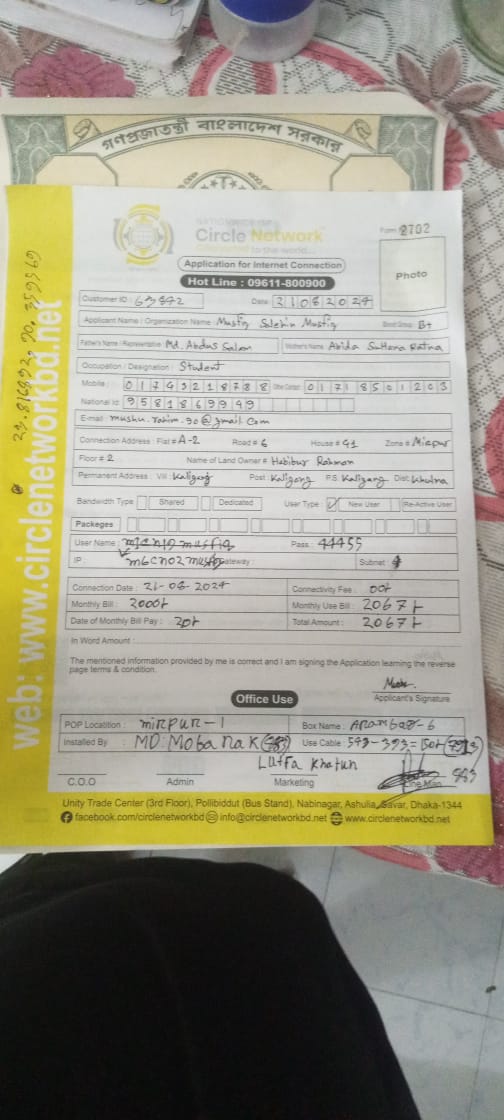 গণপ্রজাতন্ত্রী বাংলাদেশ সরকার
NATIONWIDE ISP
Circle Network
Connected to the world...
Form # 2702
Application for Internet Connection
Hot Line : 09611-800900
Photo
Customer ID : 63892
Date : 21082024
Applicant Name / Organization Name : Musfiq Salehin Musfiq Blood Group : B+
Father's Name / Representative : Md. Abdus Salam Mother's Name : Abida Sultana Ratna
Occupation / Designation : Student
Mobile : 01743218788 01718501203
National Id : 9581869949
E-mail :
Connection Address : Flat # A-2 Road # 6 House # 41 Zone # Mirpur
Floor # 2 Name of Land Owner # Habibur Rahman
Permanent Address : Vill : Kaligong Post : Kaligong P.S. Kaligang Dist: Khulna
Bandwidth Type Shared Dedicated User Type : New User Re-Active User
Packeges
User Name : musfiq Pass : 44455
IP : Gateway : Subnet :
Connection Date : 21-08-2024 Connectivity Fee :
Monthly Bill : 2000 Monthly Use Bill : 2067
Date of Monthly Bill Pay : Total Amount : 2067
In Word Amount :
The mentioned information provided by me is correct and I am signing the Application learning the reverse
page terms & condition.
Applicant's Signature
Office Use
POP Locatition : mirpur-1 Box Name : Arambag-6
Installed By : MD: Mobarak (783) Use Cable : 543-393=150
Lutfa Khatun
593
C.O.O Admin Marketing Line Man
Unity Trade Center (3rd Floor), Pollibiddut (Bus Stand), Nabinagar, Ashulia, Savar, Dhaka-1344
facebook.com/circlenetworkbd info@circlenetworkbd.net www.circlenetworkbd.net
web: www.circlenetworkbd.net
23.816892, 90.359369